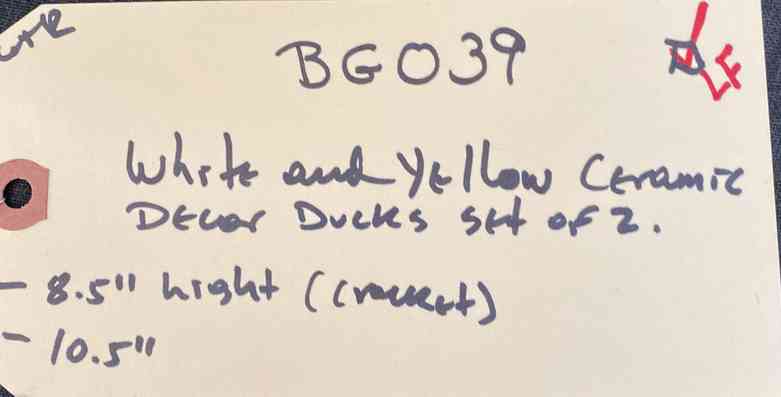 BG039
LF
White and Yellow Ceramic
Decor Ducks set of 2.
- 8.5" hight (cracket)
- 10.5"